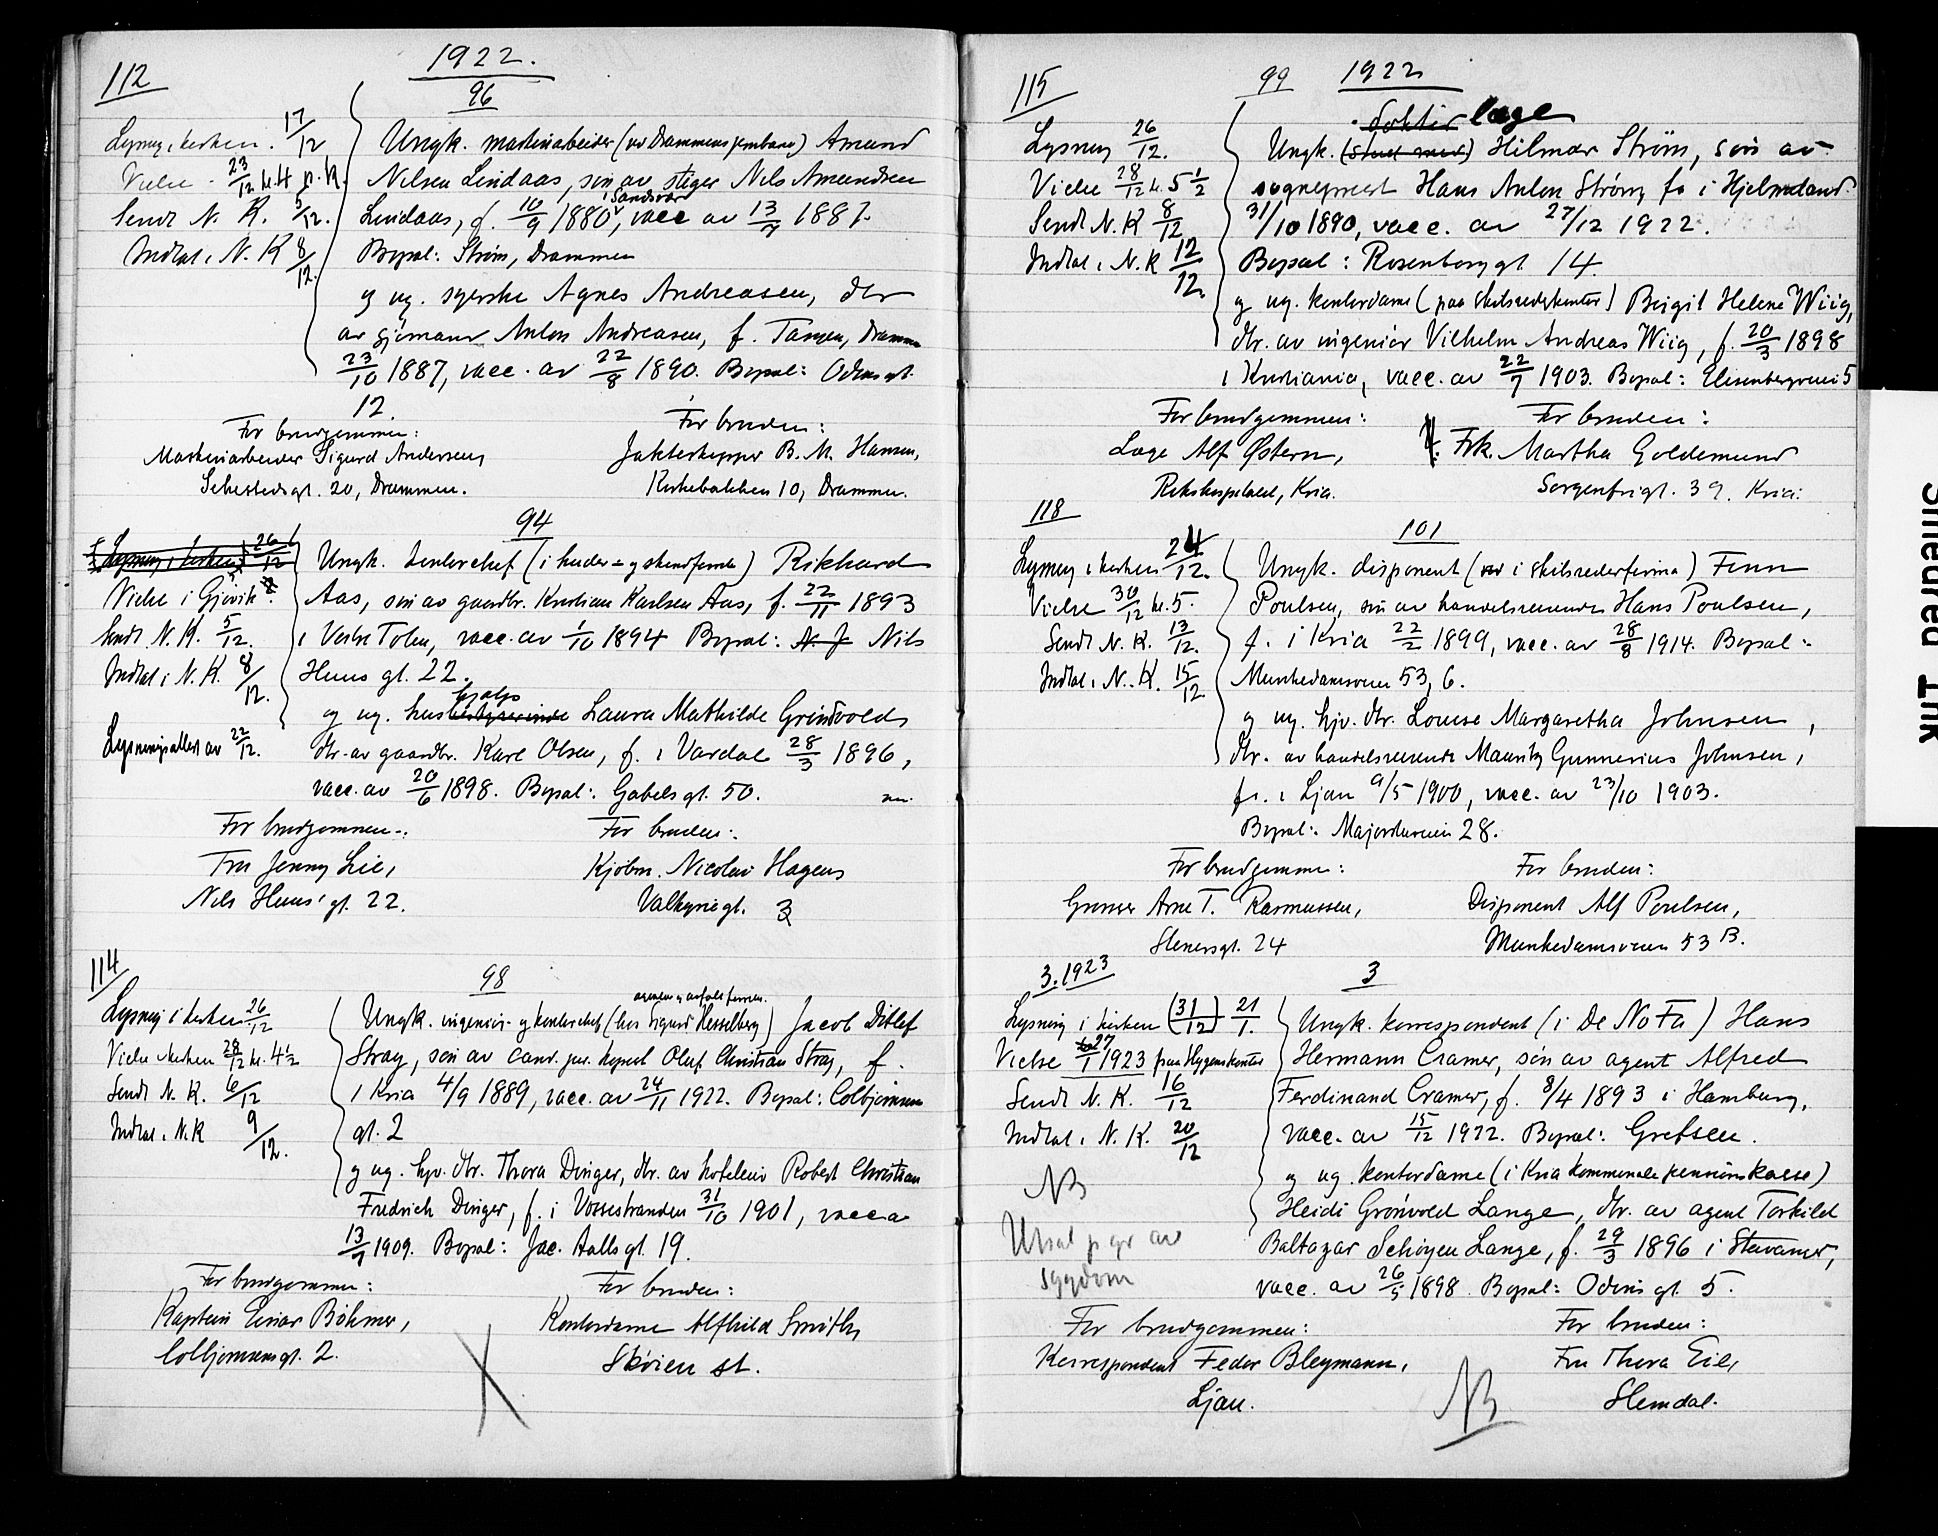 1922.
112
96
Lysning i kirken 17/12
Vielse 23/12 kl. 4
Sendt N. K. 5/12.
Indtat i N. K 8/12.
Ungk. maskinarbeider (ved Drammens jernbane) Amund
Nilsen Lindaas, søn av stiger Nils Amundsen
Lindaas, f. 10/9 1880 i Sandsvær, vacc av 13/7 1887.
Bopæl: Strøm, Drammen
og ug. syerske Agnes Andreasen, dtr
av sjømann Anton Andreasen, f. Tangen, Drammen
23/10 1887, vacc. av 22/8 1890. Bopæl: Odinsgt.
12.
For brudgommen:
Maskinarbeider Sigurd Andersen,
Sehestedsgt. 20, Drammen.
For bruden:
B. M. Hansen,
Kirkebakken 10, Drammen.
94
Lysning i kirken 26/12
Vielse i Gjøvik
Sendt N. K. 5/12.
Indtat i N. K. 8/12.
Lysningsattest av 22/12.
Ungk. kontorchef Rikhard
Aas, søn av gaardbr. Kristian Karlsen Aas, f. 22/11 1893
i Vestre Toten, vacc. av 1/10 1894 Bopæl: Nils
Huus gt. 22.
og ug. hushjælp Laura Mathilde Grindvold,
dtr. av gaardbr. Karl Olsen, f. i Vardal 28/3 1896,
vacc. av 20/6 1898. Bopæl: Gabels gt. 50.
For brudgommen:
Fru Jenny Lie,
Nils Huus' gt. 22.
For bruden:
Kjøbm. Nicolai Hagen,
Valkyriegt. 3
114
98
Lysning i kirken 26/12
Vielse i kirken 28/12 kl. 4 1/2
Sendt N. K. 6/12
Indtat i N. K 9/12.
Ungk. ingeniør og kontorchef (hos Sigurd Hesselberg) Jacob Ditlef
Stray, søn av cand. jur. Oluf Christian Stray, f.
i Kria 4/9 1889, vacc. av 24/11 1922. Bopæl: Colbjørnsens
gt. 2
og ug. hjv. dtr. Thora Dinger, dtr. av hoteleier Robert Christian
Fredrich Dinger, f. i Vossestranden 31/10 1901, vacc av
13/7 1909. Bopæl: Jac. Aalls gt. 19.
For brudgommen:
Kaptein Einar Böhmer,
Colbjørnsensgt. 2.
For bruden:
Kontordame Alfhild Smith,
Skøien st.
115
99
1922
læge
Lysning 26/12.
Vielse 28/12 kl. 5 1/2
Sendt N. K 8/12
Indtat i N. K 12/12.
Ungk. (stud med) Hilmar Strøm, søn av
sogneprest Hans Anton Strøm, fø i Hjelmeland
31/10 1890, vacc. av 27/12 1922.
Bopæl: Rosenborggt 14
og ug. kontordame (paa skibsrederkontor) Birgit Helene Wiig,
dtr. av ingeniør Vilhelm Andreas Wiig, f. 20/3 1898
i Kristiania, vacc. av 22/7 1903. Bopæl: Elisenbergveien 5
For brudgommen:
Læge Alf Østern,
Rikshospitalet, Kria.
For bruden:
Frk. Martha Goldemund
Sorgenfrigt. 39. Kria.
118
101
Lysning i kirken 24/12.
Vielse 30/12 kl. 5.
Sendt N. K. 13/12.
Indtat i N. K. 15/12.
Ungk. disponent (i skibsrederfirma) Finn
Poulsen, søn av handelsreisende Hans Poulsen,
f. i Kria 22/2 1899, vacc. av 28/8 1914. Bopæl:
Munkedamsveien 53, 6.
og ug. hjv. dtr. Louise Margaretha Johnsen,
dtr. av handelsreisende Mauritz Gunnerius Johnsen,
fø. i Ljan 9/5 1900, vacc. av 23/10 1903.
Bopæl: Majorstuveien 28.
For brudgommen:
Grosser Arne T. Rasmussen,
Stenersgt. 24
For bruden:
Disponent Alf Poulsen,
Munkedamsveien 53 B.
3. 1923
3
Lysning i kirken (31/12) 21/1.
Vielse 27/1 1923 paa Hygenskontor
Sendt N. K. 16/12
Indtat i N. K. 20/12
NB
Utsat p gr av
sygdom
Ungk. korrespondent (i De No Fa) Hans
Hermann Cramer, søn av agent Alfred
Ferdinand Cramer, f. 8/4 1893 i Hamburg,
vacc. av 15/12 1922. Bopæl: Grefsen.
og ug. kontordame (i Kria kommunale pensionskasse)
Heidi Grönvold Lange, dtr. av agent Torkild
Baltazar Schøyen Lange, f. 29/3 1896 i Stavanger,
vacc. av 26/5 1898. Bopæl: Odins gt. 5.
For brudgommen:
Korrespondent Feder Bleymann,
Ljan.
For bruden:
Fru Thora Eie,
Slemdal.
NB
Smeared Ink